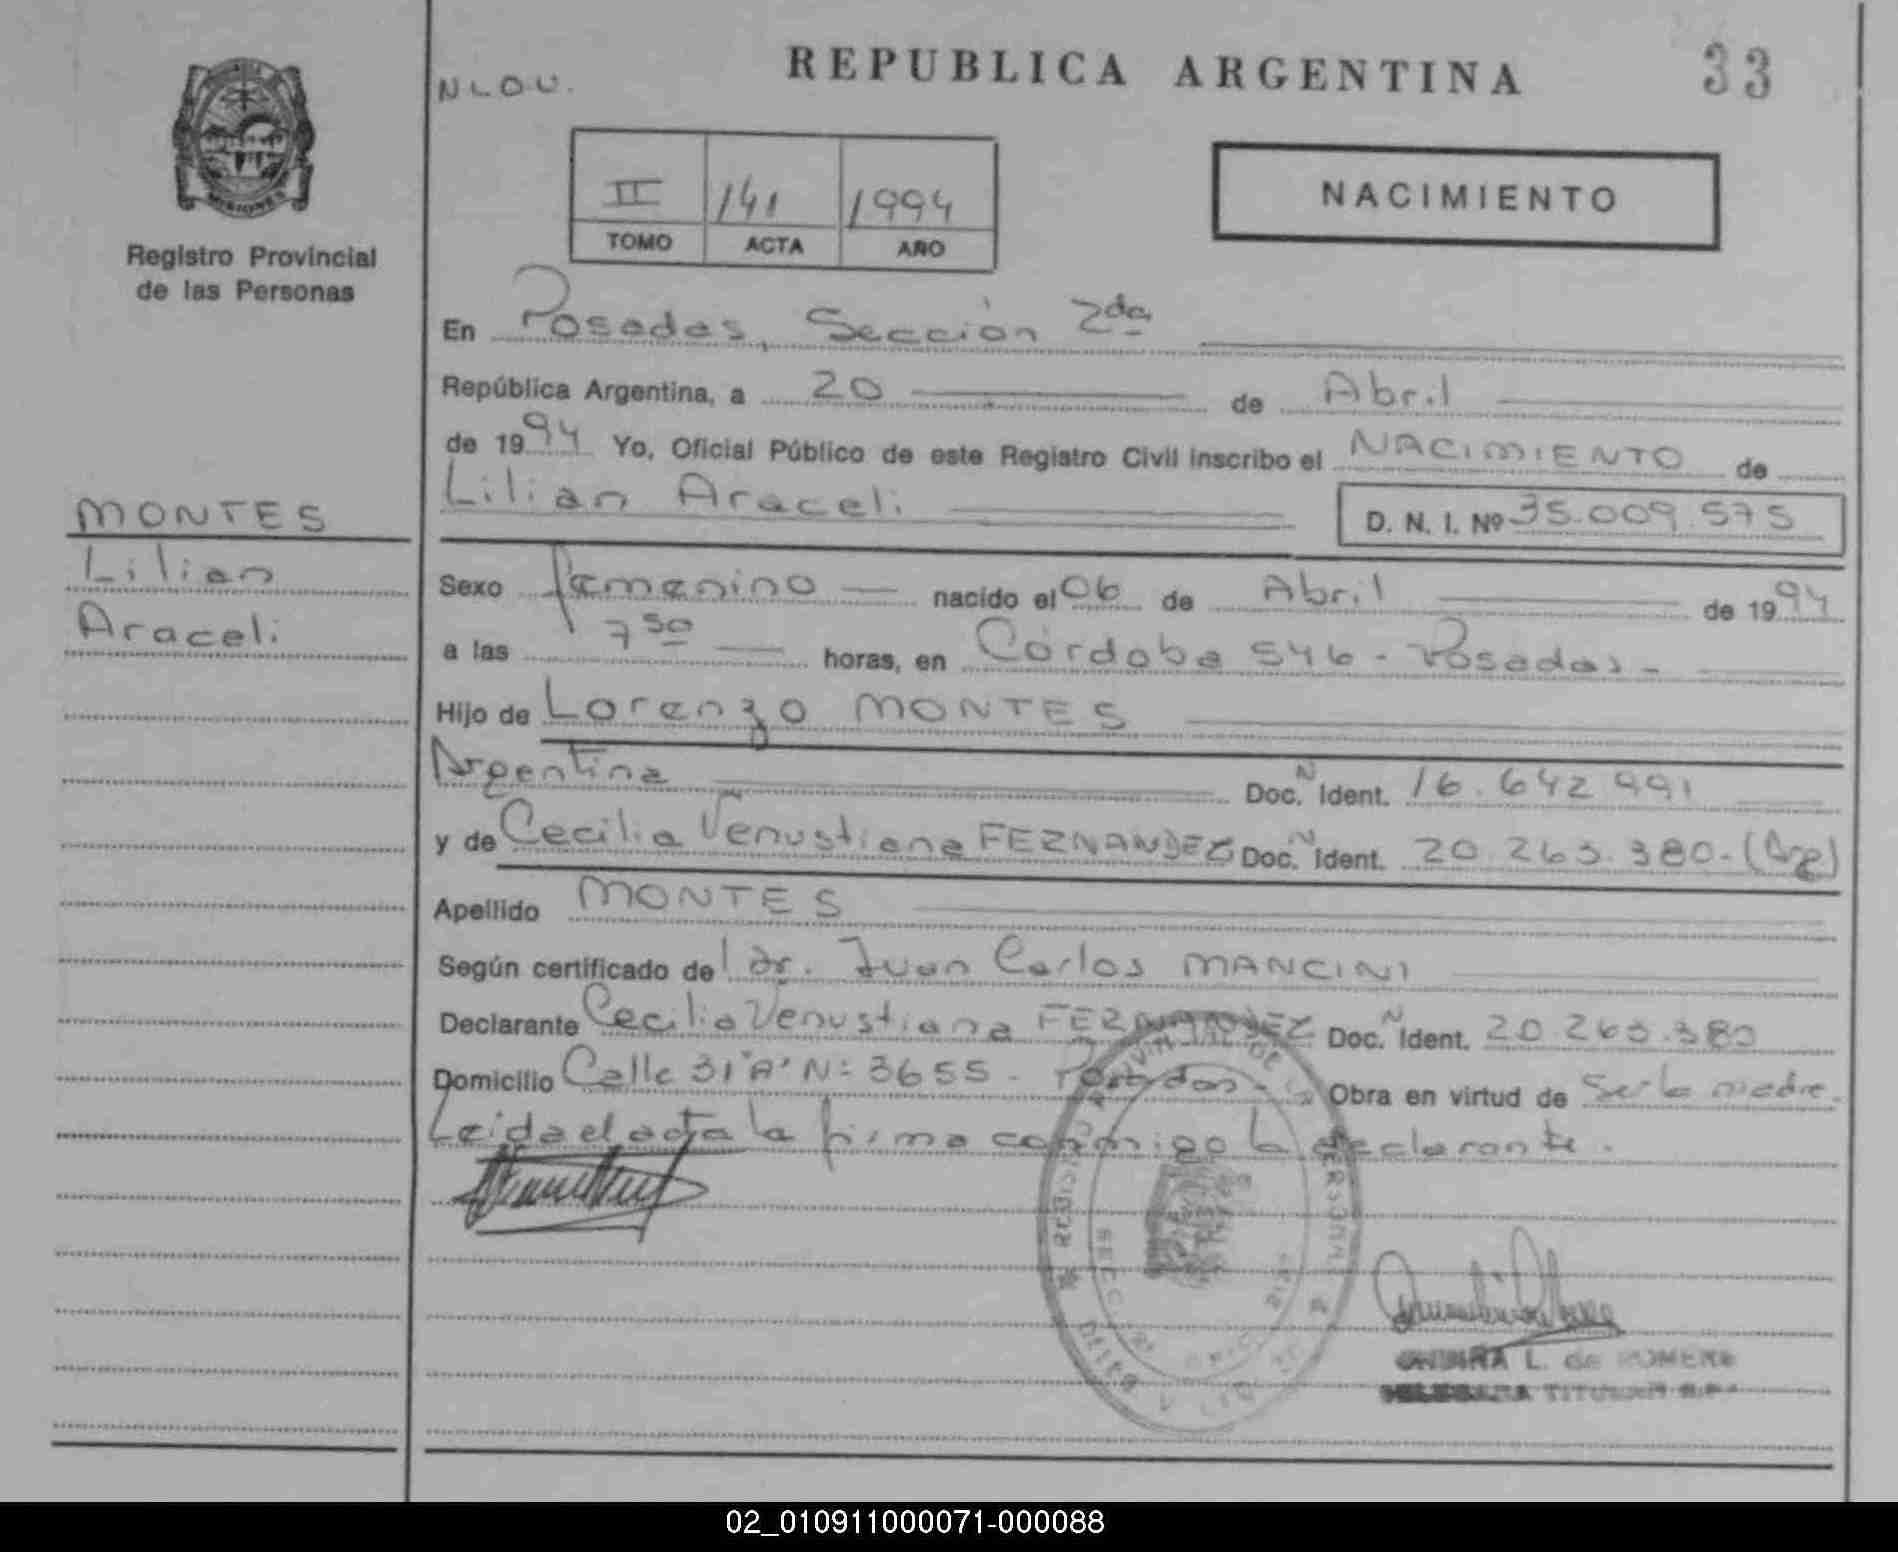 REPUBLICA ARGENTINA
33
N L O U.
MISIONES
Registro Provincial
de las Personas
II 141 1994
TOMO ACTA AÑO
NACIMIENTO
MONTES
Lilian
Araceli
En Posadas, Sección 2da
República Argentina, a 20 de Abril
de 1994 Yo, Oficial Público de este Registro Civil inscribo el NACIMIENTO de
Lilian Araceli D. N. I. Nº 35.009.575
Sexo femenino nacido el 06 de Abril de 1994
a las 7 50 horas, en Córdoba 546 - Posadas -
Hijo de Lorenzo MONTES
Argentina Doc. N Ident. 16.642.991
y de Cecilia Venustiana FERNANDEZ Doc. N Ident. 20.263.380 - (Arg)
Apellido MONTES
Según certificado del dr. Juan Carlos MANCINI
Declarante Cecilia Venustiana FERNANDEZ Doc. N Ident. 20.263.380
Domicilio Calle 31 "A" Nº 3655 - Posadas - Obra en virtud de Ser la madre.
Leida el acta la firma conmigo la declarante.
L. de ROMERO
TITULAR
02_010911000071-000088